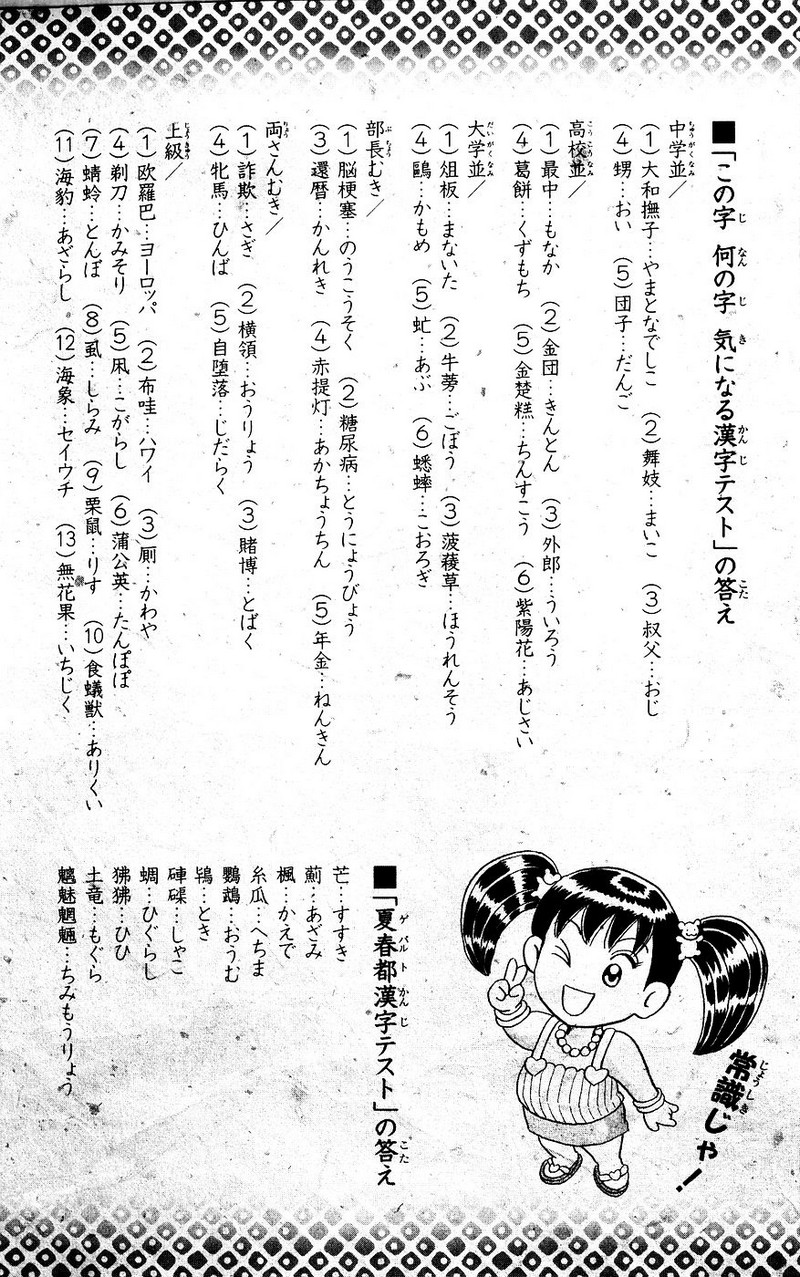 ■「この字 何の字 気になる漢字テスト」の答え
じ なん じ き かん じ こた
中学並／
ちゅうがくなみ
(1)大和撫子…やまとなでしこ (2)舞妓…まいこ (3)叔父…おじ
(4)甥…おい (5)団子…だんご
高校並／
こうこうなみ
(1)最中…もなか (2)金団…きんとん (3)外郎…ういろう
(4)葛餅…くずもち (5)金楚糕…ちんすこう (6)紫陽花…あじさい
大学並／
だいがくなみ
(1)俎板…まないた (2)牛蒡…ごぼう (3)菠薐草…ほうれんそう
(4)鷗…かもめ (5)虻…あぶ (6)蟋蟀…こおろぎ
部長むき／
ぶちょう
(1)脳梗塞…のうこうそく (2)糖尿病…とうにょうびょう
(3)還暦…かんれき (4)赤提灯…あかちょうちん (5)年金…ねんきん
両さんむき／
りょう
(1)詐欺…さぎ (2)横領…おうりょう (3)賭博…とばく
(4)牝馬…ひんば (5)自堕落…じだらく
上級／
じょうきゅう
(1)欧羅巴…ヨーロッパ (2)布哇…ハワイ (3)厠…かわや
(4)剃刀…かみそり (5)凩…こがらし (6)蒲公英…たんぽぽ
(7)蜻蛉…とんぼ (8)虱…しらみ (9)栗鼠…りす (10)食蟻獣…ありくい
(11)海豹…あざらし (12)海象…セイウチ (13)無花果…いちじく
常識じゃ！
じょうしき
■「夏春都漢字テスト」の答え
ゲパルト かんじ こた
芒…すすき
薊…あざみ
楓…かえで
糸瓜…へちま
鸚鵡…おうむ
鴇…とき
硨磲…しゃこ
蜩…ひぐらし
狒狒…ひひ
土竜…もぐら
魑魅魍魎…ちみもうりょう